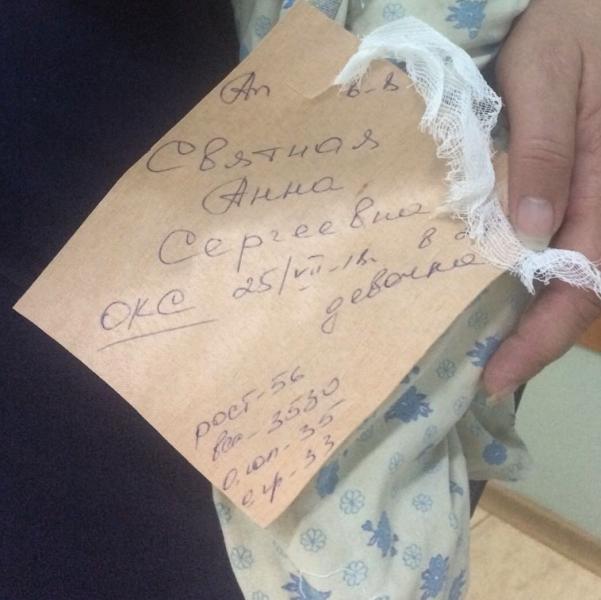 Ап
Святная
Анна
Сергеевна
ОКС 25/VII-18. в
девочка
рост-56
вес-3530
о.гол-35
о.гр-33